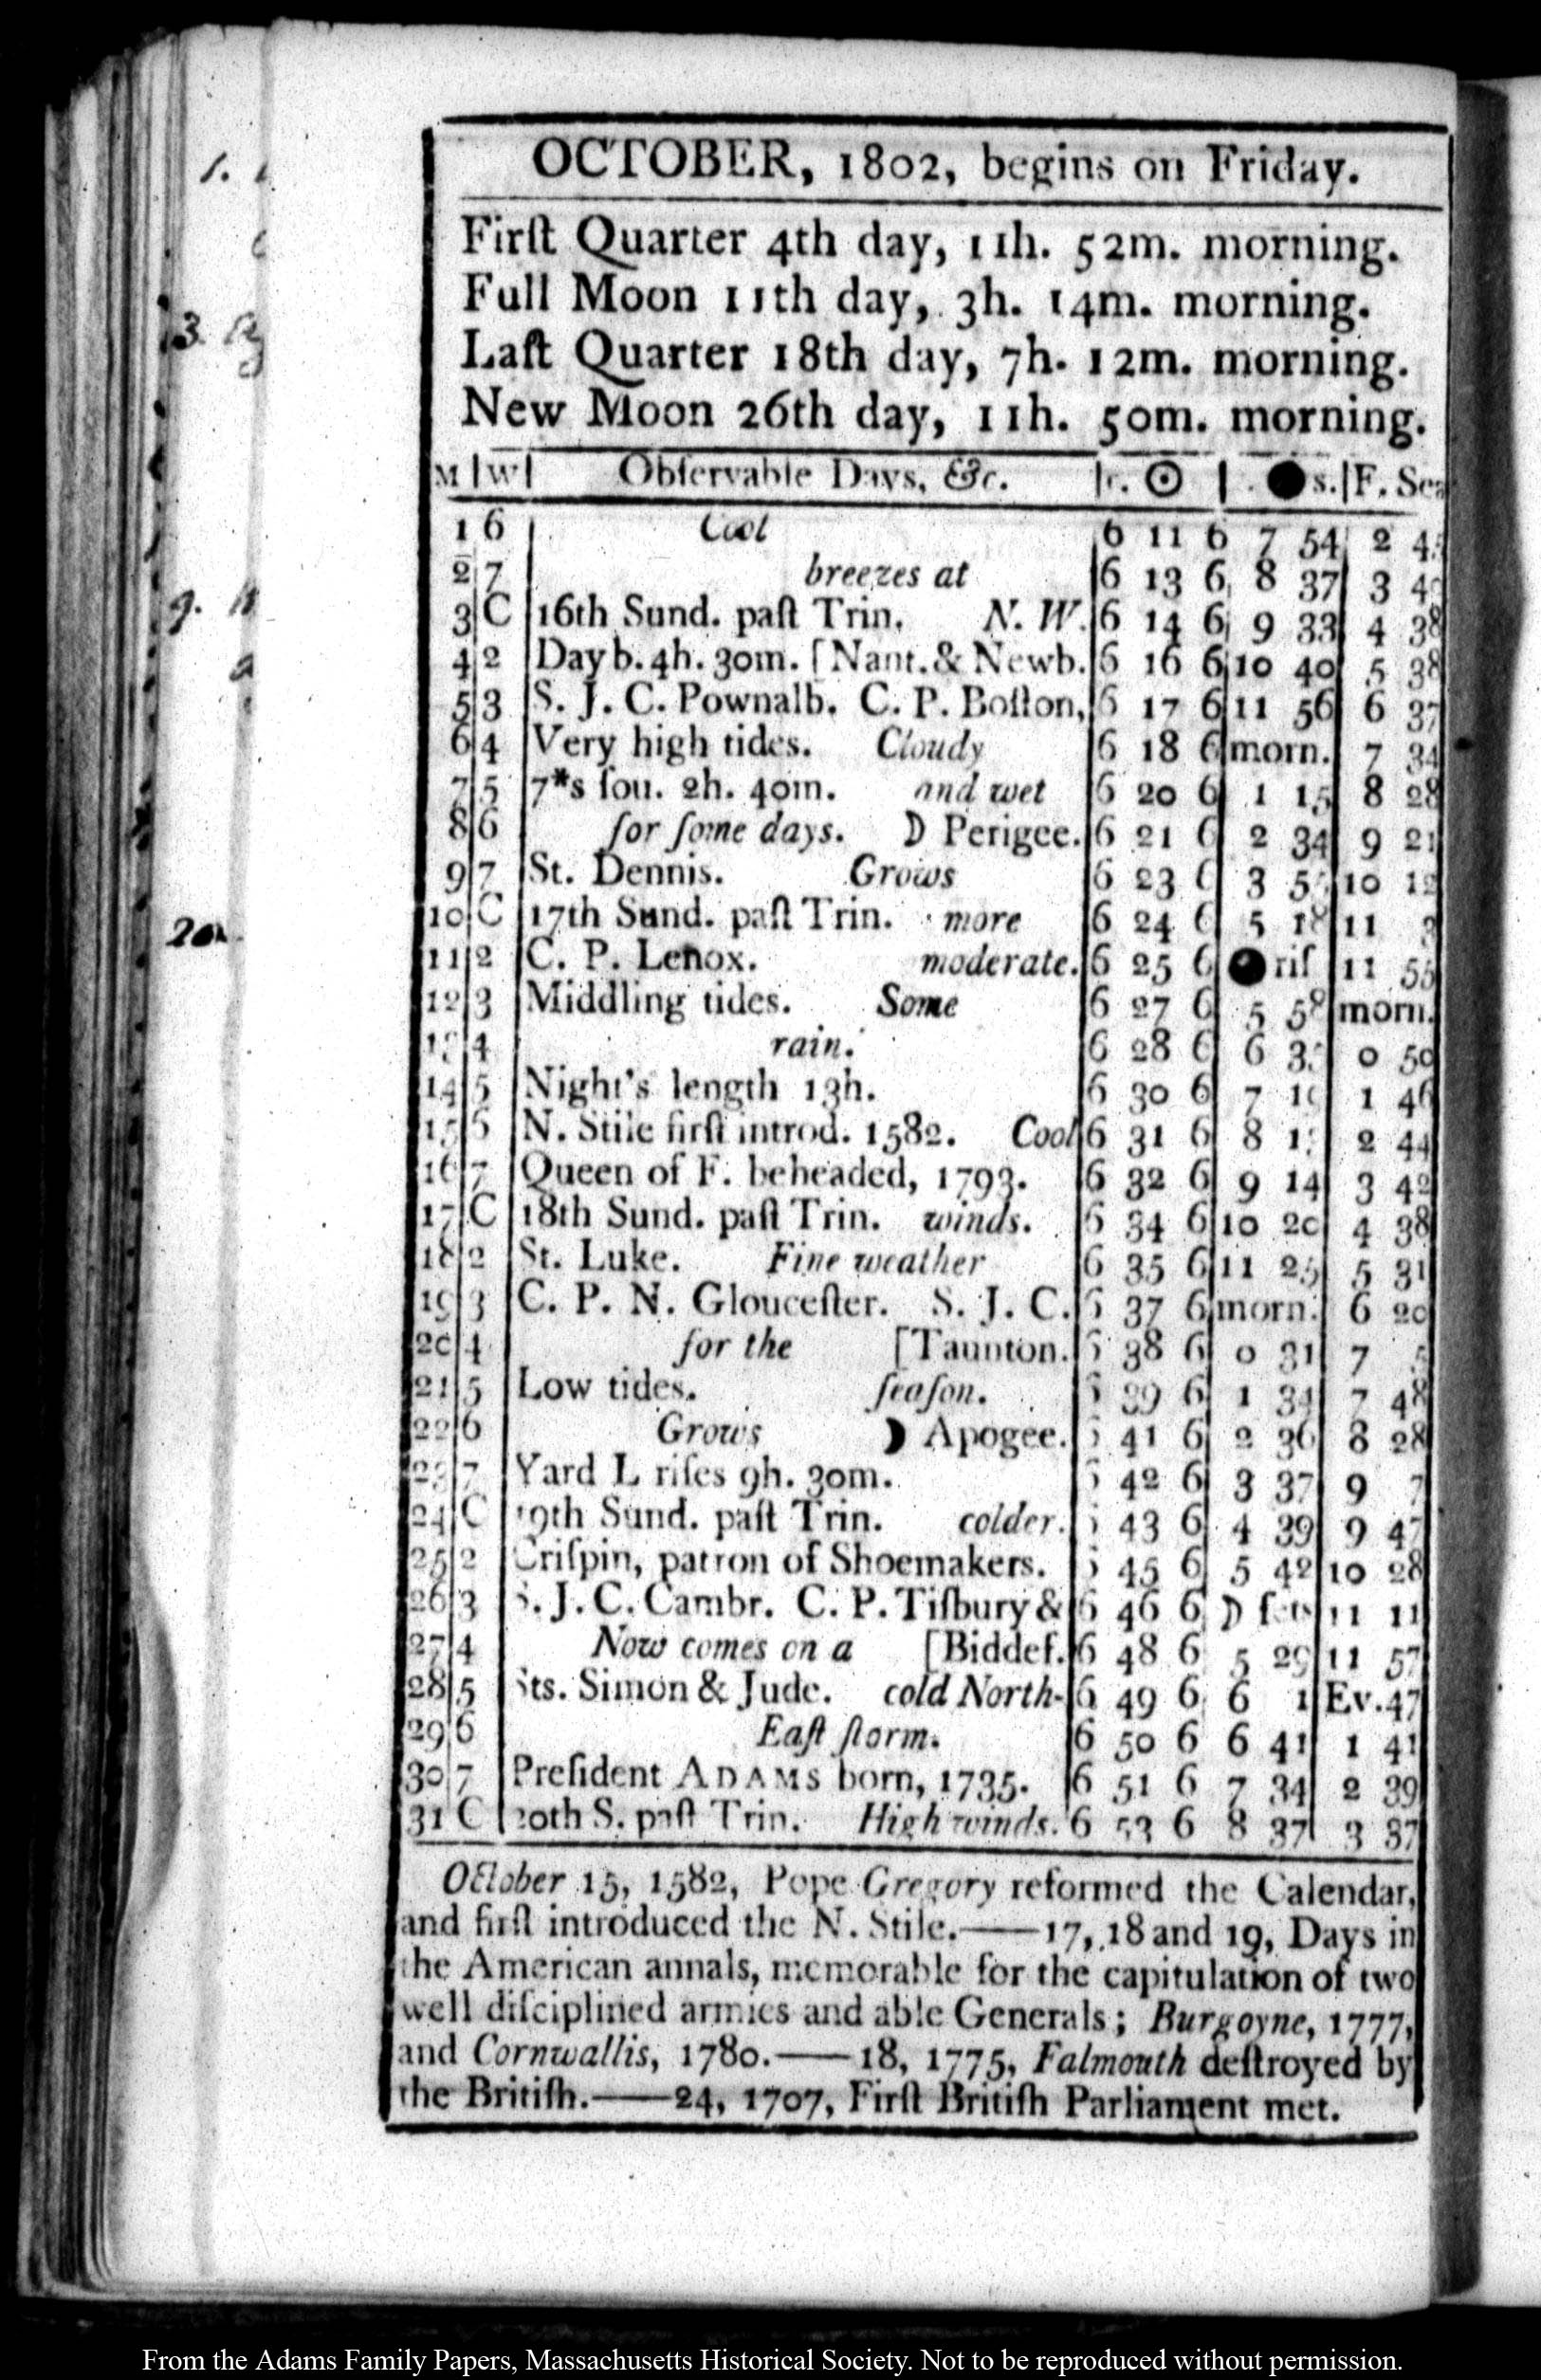 OCTOBER, 1802, begins on Friday.
Firſt Quarter 4th day, 11h. 52m. morning.
Full Moon 11th day, 3h. 14m. morning.
Laſt Quarter 18th day, 7h. 12m. morning.
New Moon 26th day, 11h. 50m. morning.
M|W| Obſervable Days, &c. |r. ☉ | ● s.|F. Sea
1 6 Cool 6 11 6 7 54 2
2 7 breezes at 6 13 6 8 37 3
3 C 16th Sund. paſt Trin. N. W. 6 14 6 9 33 4 38
4 2 Day b. 4h. 30m. [Nant. & Newb. 6 16 6 10 40 5 38
5 3 S. J. C. Pownalb. C. P. Boſton, 6 17 6 11 56 6 37
6 4 Very high tides. Cloudy 6 18 6 morn. 7 34
7 5 7*s ſou. 2h. 40m. and wet 6 20 6 1 15 8 28
8 6 for ſome days. ☽ Perigee. 6 21 6 2 34 9 21
9 7 St. Dennis. Grows 6 23 6 3 10 12
10 C 17th Sund. paſt Trin. more 6 24 6 5 18 11
11 2 C. P. Lenox. moderate. 6 25 6 ● riſ 11 55
12 3 Middling tides. Some 6 27 6 5 58 morn.
13 4 rain. 6 28 6 6 0 50
14 5 Night's length 13h. 6 30 6 7 1 46
15 6 N. Stile firſt introd. 1582. Cool 6 31 6 8 2 44
16 7 Queen of F. beheaded, 1793. 6 32 6 9 14 3 42
17 C 18th Sund. paſt Trin. winds. 6 34 6 10 20 4 38
18 2 St. Luke. Fine weather 6 35 6 11 25 5 31
19 3 C. P. N. Glouceſter. S. J. C. 6 37 6 morn. 6 20
20 4 for the [Taunton. 6 38 6 0 31 7
21 5 Low tides. ſeaſon. 6 39 6 1 34 7 48
22 6 Grows ☽ Apogee. 6 41 6 2 36 8 28
23 7 Yard L riſes 9h. 30m. 6 42 6 3 37 9 7
24 C 19th Sund. paſt Trin. colder. 6 43 6 4 39 9 47
25 2 Criſpin, patron of Shoemakers. 6 45 6 5 42 10 28
26 3 S. J. C. Cambr. C. P. Tiſbury & 6 46 6 ☽ ſets 11 11
27 4 Now comes on a [Biddef. 6 48 6 5 29 11 57
28 5 Sts. Simon & Jude. cold North- 6 49 6 6 1 Ev. 47
29 6 Eaſt ſtorm. 6 50 6 6 41 1 41
30 7 Preſident ADAMS born, 1735. 6 51 6 7 34 2 39
31 C 20th S. paſt Trin. High winds. 6 53 6 8 37 3 37
October 15, 1582, Pope Gregory reformed the Calendar,
and firſt introduced the N. Stile.——17, 18 and 19, Days in
the American annals, memorable for the capitulation of two
well diſciplined armies and able Generals; Burgoyne, 1777,
and Cornwallis, 1780.——18, 1775, Falmouth deſtroyed by
the Britiſh.——24, 1707, Firſt Britiſh Parliament met.
1.
3.
9.
20.
From the Adams Family Papers, Massachusetts Historical Society. Not to be reproduced without permission.